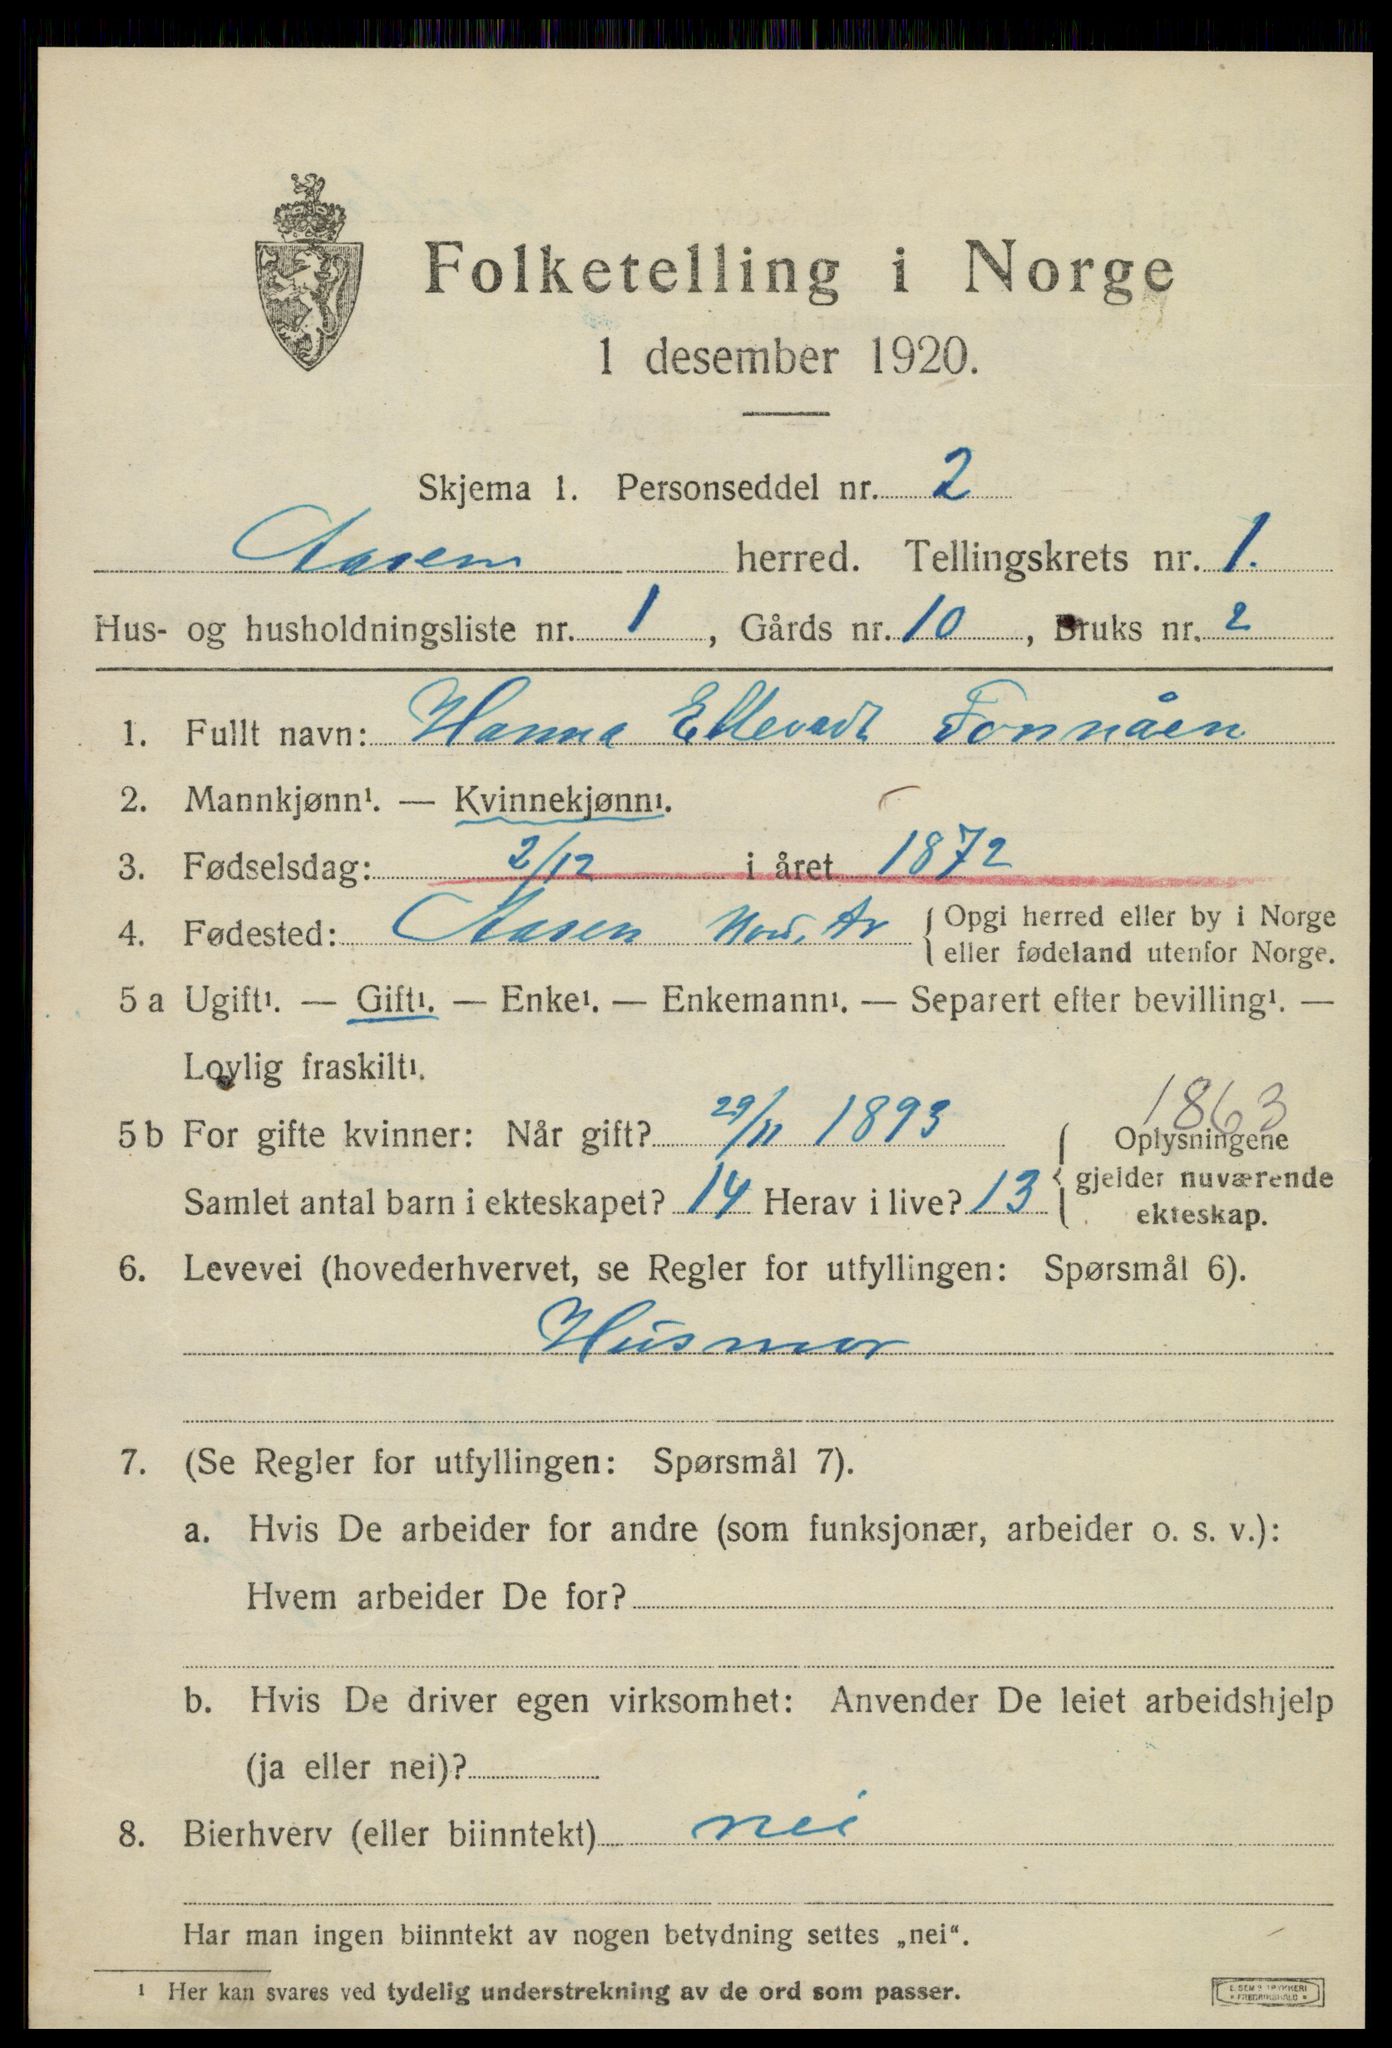 Folketelling i Norge
1 desember 1920.
Skjema 1. Personseddel nr. 2
Aasen herred. Tellingskrets nr. 1.
Hus- og husholdningsliste nr. 1, Gårds nr. 10, Bruks nr. 2
1. Fullt navn: Hanna Ellevardt Fornåen
2. Mannkjønn¹. — Kvinnekjønn¹.
3. Fødselsdag: 2/12 i året 1872
4. Fødested: Aasen { Opgi herred eller by i Norge
eller fødeland utenfor Norge.
5 a Ugift¹. — Gift¹. — Enke¹. — Enkemann¹. — Separert efter bevilling¹. —
Lovlig fraskilt¹.
1863
5 b For gifte kvinner: Når gift? 29/11 1893 { Oplysningene
gjelder nuværende
Samlet antal barn i ekteskapet? 14 Herav i live? 13
ekteskap.
6. Levevei (hovederhvervet, se Regler for utfyllingen: Spørsmål 6).
Husmor
7. (Se Regler for utfyllingen: Spørsmål 7).
a. Hvis De arbeider for andre (som funksjonær, arbeider o. s. v.):
Hvem arbeider De for?
b. Hvis De driver egen virksomhet: Anvender De leiet arbeidshjelp
(ja eller nei)?
8. Bierhverv (eller biinntekt) nei
Har man ingen biinntekt av nogen betydning settes „nei“.
¹ Her kan svares ved tydelig understrekning av de ord som passer.